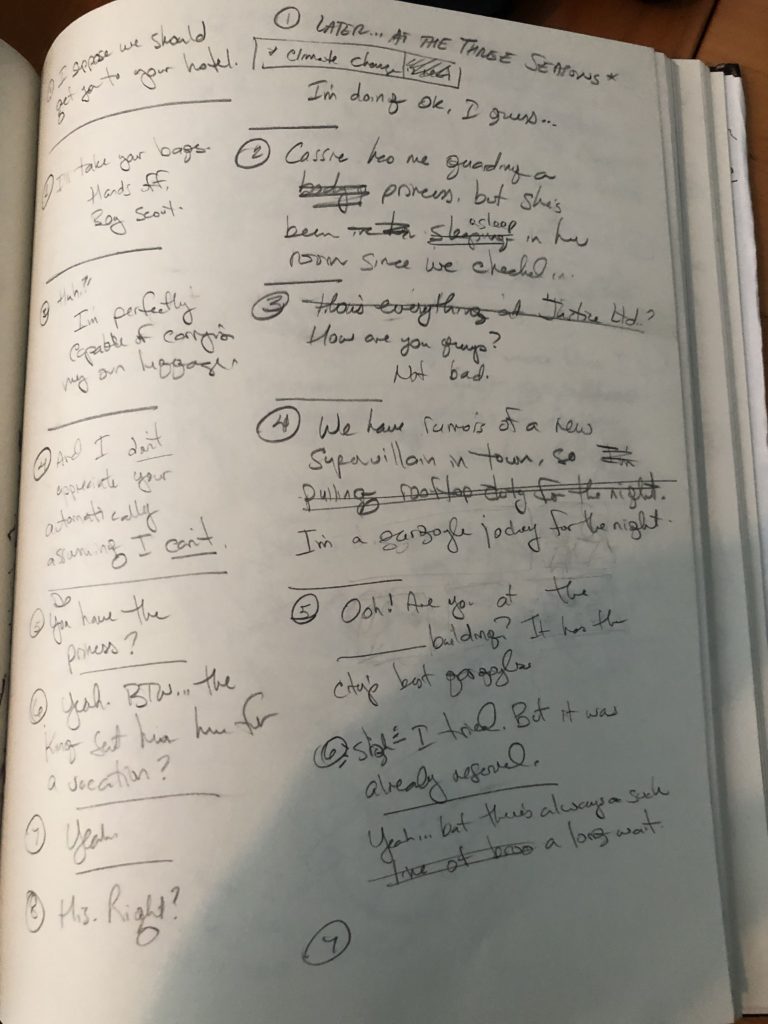 ① I suppose we should
get you to your hotel.
② I'll take your bags.
Hands off,
Boy Scout.
③ Huh?!
I'm perfectly
capable of carrying
my own luggage.
④ And I don't
appreciate your
automatically
assuming I can't.
⑤ Do You have the
princess?
⑥ Yeah. BTW... the
King sent him here for
a vacation?
⑦ Yeah.
⑧ His. Right?
① LATER... AT THE THREE SEASONS *
* Climate change
I'm doing ok, I guess...
② Cassie has me guarding a
princess, but she's
been asleep in her
room since we checked in.
③ How's everything at Justice Ltd.?
How are you guys?
Not bad.
④ We have rumors of a new
Supervillain in town, so
pulling rooftop duty for the night.
I'm a gargoyle jockey for the night.
⑤ Ooh! Are you at the
______ building? It has the
city's best gargoyles
⑥ Sigh I tried. But it was
already reserved.
Yeah... but there's always a such
a long wait.
⑦